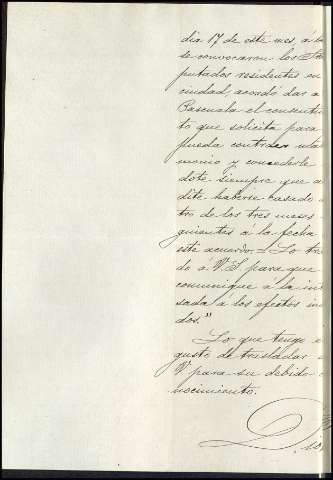 dia 17 de este mes, á
se convocaron los
putados residentes en
ciudad, acordó dar a
Pascuala el consentim
to que solicita para
pueda contraer
monio y concederle
dote siempre que a
dite haberse casado
tro de los tres meses
guientes á la fecha
este acuerdo. Lo tras
do á V. S. para que
comunique á la in
sada á los efectos in
dos."
Lo que tengo e
gusto de trasladar
V para su debido
nocimiento.
D